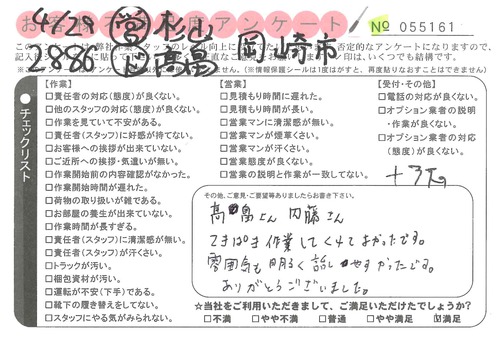 お客様アンケート
No 055161
4/29 営 杉山 岡崎市
込んでいない
✓チェックリスト
【作業】
□責任者の対応(態度)が良くない。
□他のスタッフの対応(態度)が良くない。
□作業を見ていて不安がある。
□責任者(スタッフ)に好感が持てない。
□お客様への挨拶が出来ていない。
□ご近所への挨拶・気遣いが無い。
□作業開始前の内容確認がなかった。
□作業開始時間が遅れた。
□荷物の取り扱いが雑である。
□お部屋の養生が出来ていない。
□作業時間が長すぎる。
□責任者(スタッフ)に清潔感が無い。
□責任者(スタッフ)が汗くさい。
□トラックが汚い。
□梱包資材が汚い。
□運転が不安(下手)である。
□靴下の履き替えをしてない。
□スタッフにやる気がみられない。
【営業】
□見積もり時間に遅れた。
□見積もり時間が長い。
□営業マンに清潔感が無い。
□営業マンが煙草くさい。
□営業マンが汗くさい。
□営業態度が良くない。
□営業の説明と作業が一致してない。
【受付・その他】
□電話の対応が良くない。
□オプション業者の説明
・作業が良くない。
□オプション業者の対応
(態度)が良くない。
その他、ご意見・ご要望等ありましたらお書き下さい。
高畠さん 内藤さん
てきぱき作業してくれてよかったです。
雰囲気も明るく話しやすかったです。
ありがとうございました。
☆当社をご利用いただきまして、ご満足いただけたでしょうか?
□不満 □やや不満 □普通 □やや満足 ☑満足